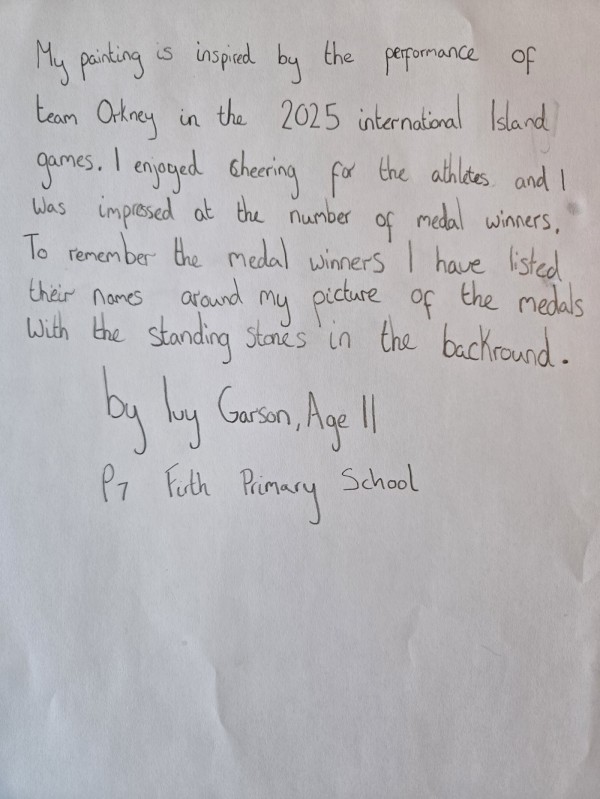 My painting is inspired by the performance of
team Orkney in the 2025 international Island
games. I enjoyed cheering for the athletes and I
was impressed at the number of medal winners.
To remember the medal winners I have listed
their names around my picture of the medals
With the standing stones in the backround.
by Ivy Garson, Age 11
P7 Firth Primary School